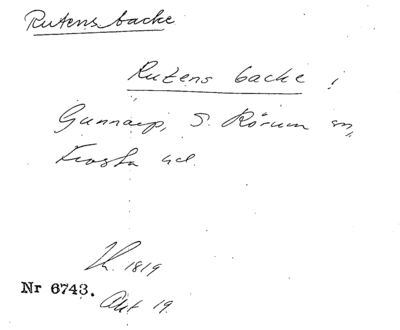 Rutens backe
Rutens backe i
Gunnarp, S. Rörum sn,
Frosta hd.
1819
Nr 6743.
Akt 19.